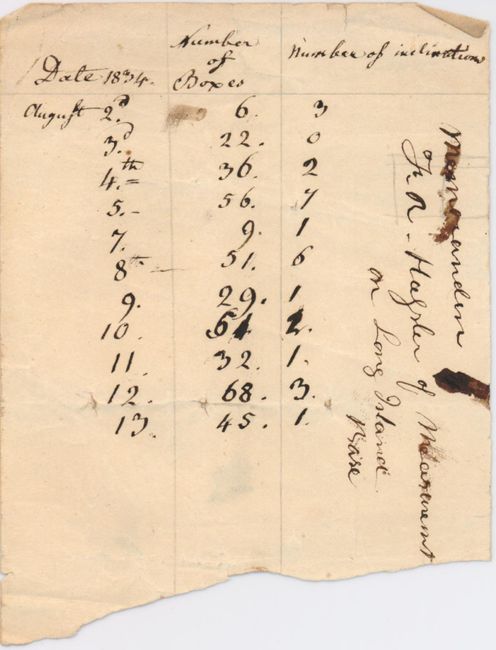 Date 1834. Number of Boxes Number of inclinations
August 2.d 6. 3
3.d 22. 0
4.th 36. 2
5.- 56. 7
7. 9. 1
8th 51. 6
9. 29. 1.
10. 2.
11. 32. 1.
12. 68. 3.
13. 45. 1.
F. R. Hassler of Measurement
on Long Island
Base